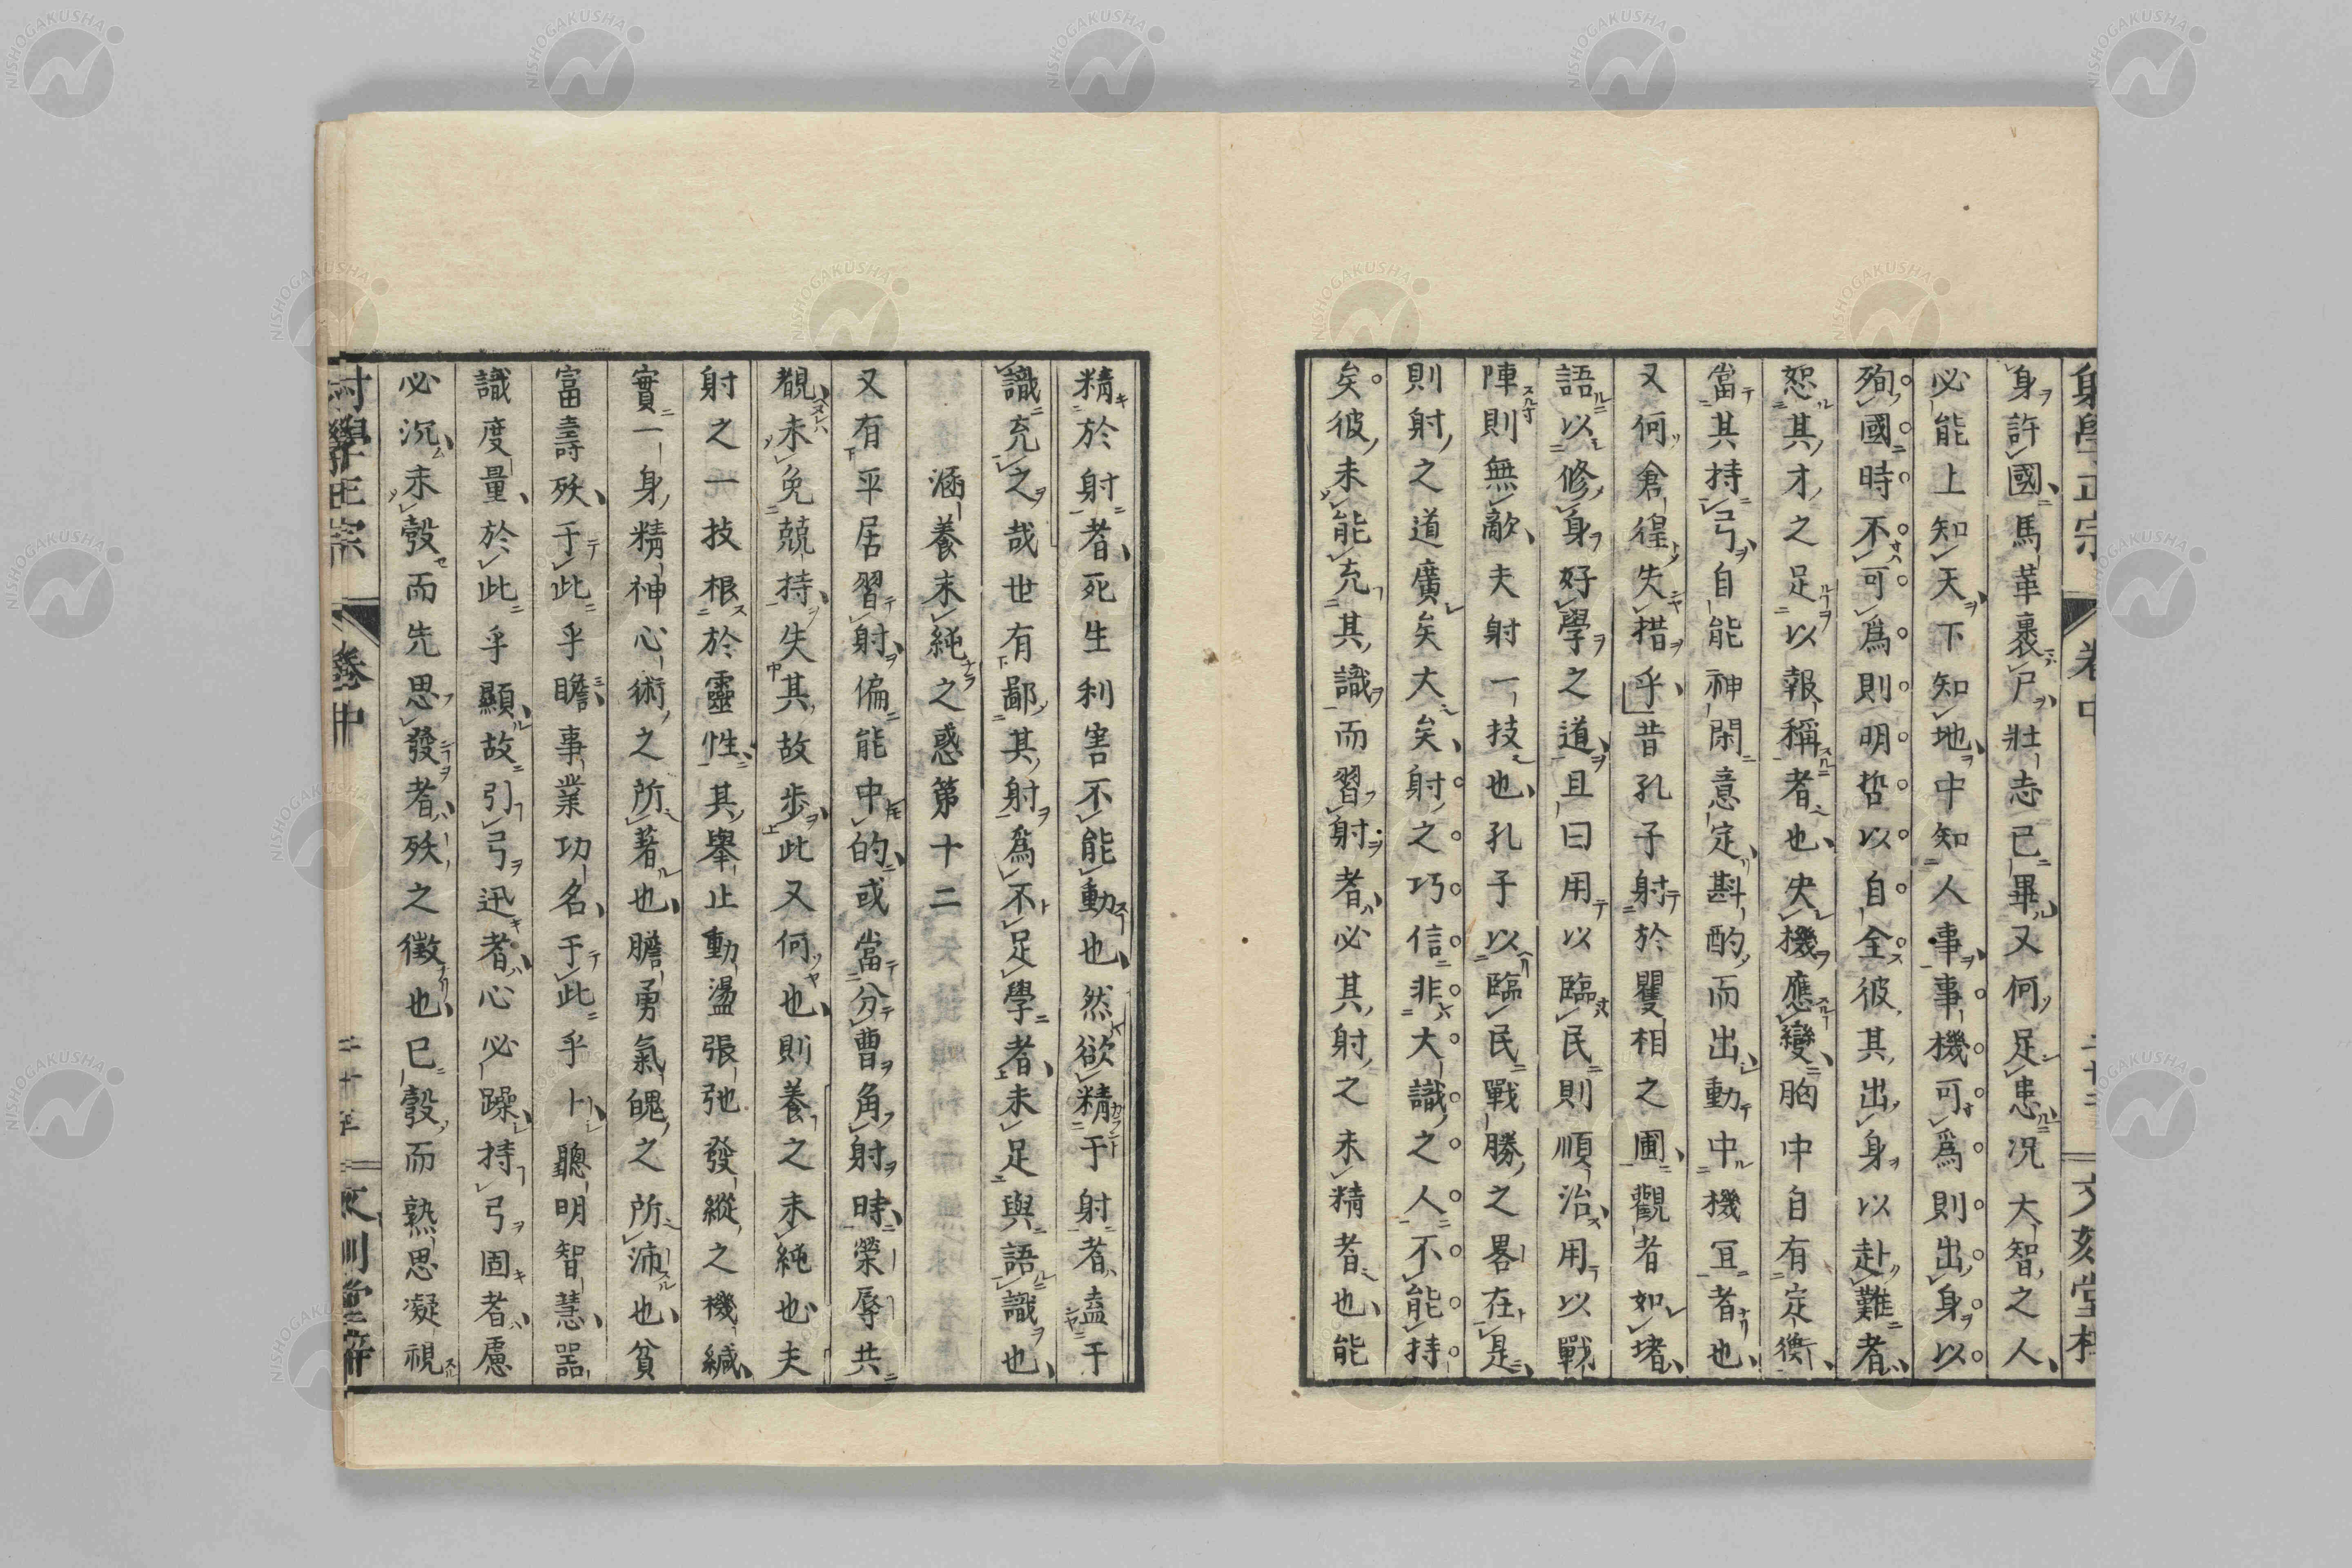 身許國馬革裹尸壯志已畢又何足患況大智之人
必能上知天下知地中知人事事機可爲則出身以
殉國時不可爲則明哲以自全彼其出身以赴難者
恕其才之足以報稱者也失機應變胸中自有定衡
當其持弓自能神閑意定斟酌而出動中機宜者也
又何倉徨失措乎昔孔子射於矍相之圃觀者如堵
語以修身好學之道且曰用以臨民則順治用以戰
陣則無敵夫射一技也孔子以臨民戰勝之畧在是
則射之道廣矣大矣射之巧信非大識之人不能持
矣彼未能充其識而習射者必其射之未精者也能
精於射者死生利害不能動也然欲精于射者盍于
識充之哉世有鄙其射爲不足學者未足與語識也
涵養未純之惑第十二
又有平居習射偏能中的或當分曹角射時榮辱共
覩未免兢持失其故步此又何也則養之未純也夫
射之一技根於靈性其舉止動盪張弛發縱之機緘
實一身精神心術之所著也膽勇氣魄之所沛也貧
富壽殀于此乎瞻事業功名于此乎卜聰明智慧器
識度量於此乎顯故引弓迅者心必躁持弓固者慮
必沉未彀而先思發者殀之徵也已彀而熟思凝視
射學正宗
卷中
NISHOGAKUSHA